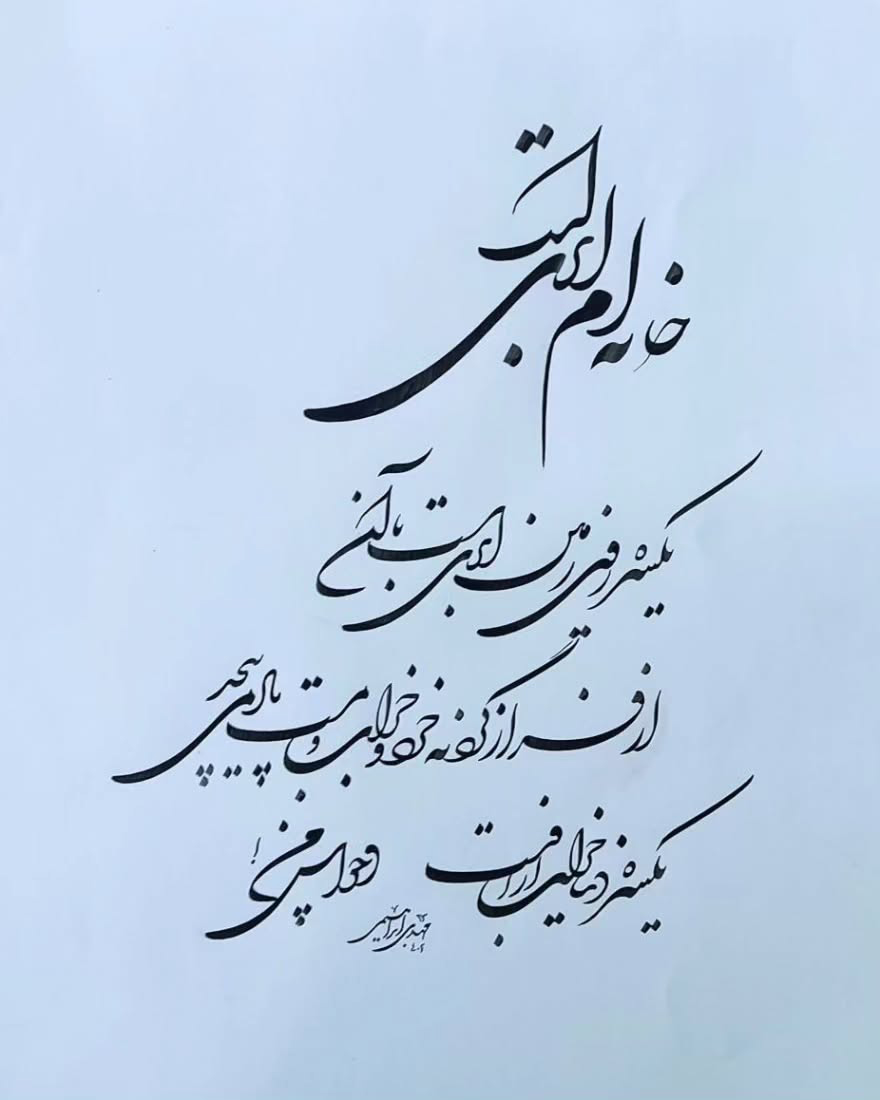 خانه ام ابریست
یکسره روی زمین ابریست با آن
از فراز گردنه خرد و خراب و مست باد می پیچد
یکسره دنیا خراب از اوست و حواس من!
مهدی ابراهیمی